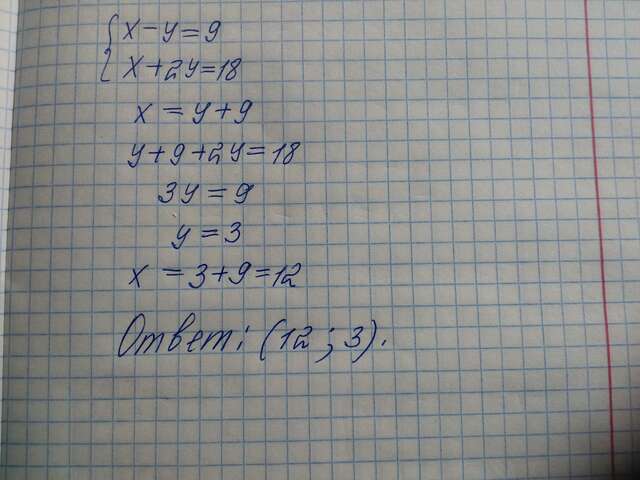 x - y = 9
x + 2y = 18
x = y + 9
y + 9 + 2y = 18
3y = 9
y = 3
x = 3 + 9 = 12
Ответ: (12 ; 3).